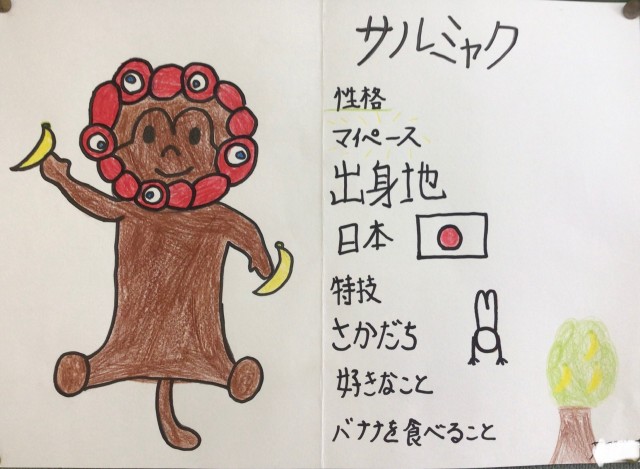 サルミャク
性格
マイペース
出身地
日本
特技
さかだち
好きなこと
バナナを食べること